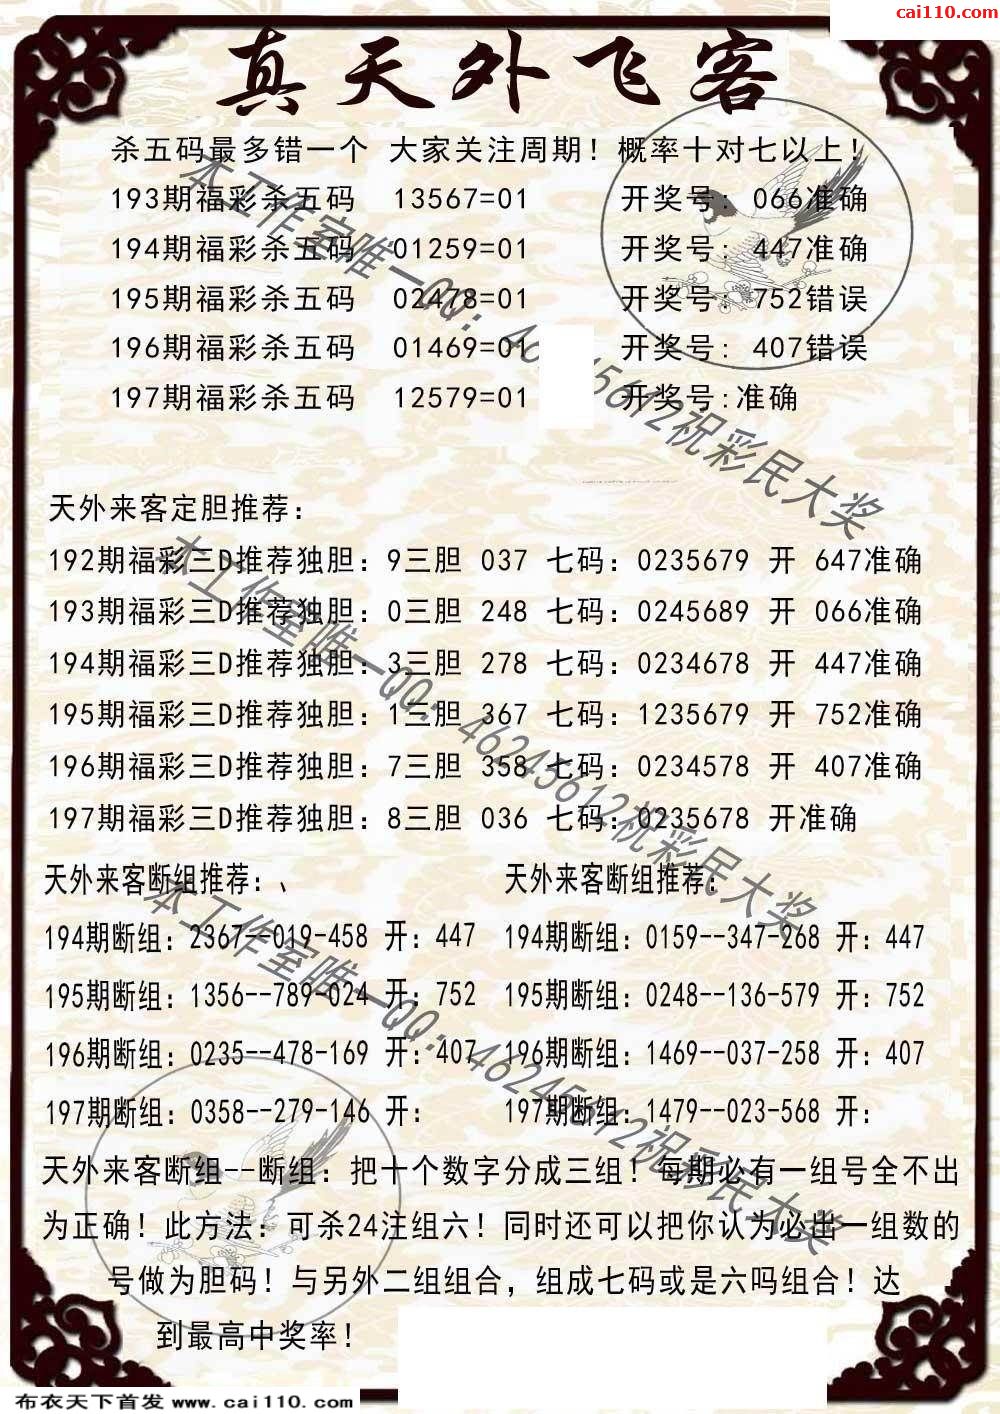 cai110.com
真天外飞客
杀五码最多错一个 大家关注周期！概率十对七以上！
193期福彩杀五码 13567=01 开奖号: 066准确
194期福彩杀五码 01259=01 开奖号: 447准确
195期福彩杀五码 02478=01 开奖号: 752错误
196期福彩杀五码 01469=01 开奖号: 407错误
197期福彩杀五码 12579=01 开奖号:准确
天外来客定胆推荐：
192期福彩三D推荐独胆：9三胆 037 七码：0235679 开 647准确
193期福彩三D推荐独胆：0三胆 248 七码：0245689 开 066准确
194期福彩三D推荐独胆：3三胆 278 七码：0234678 开 447准确
195期福彩三D推荐独胆：1三胆 367 七码：1235679 开 752准确
196期福彩三D推荐独胆：7三胆 358 七码：0234578 开 407准确
197期福彩三D推荐独胆：8三胆 036 七码：0235678 开准确
天外来客断组推荐：、 天外来客断组推荐：
194期断组：2367--019-458 开：447 194期断组：0159--347-268 开：447
195期断组：1356--789-024 开：752 195期断组：0248--136-579 开：752
196期断组：0235--478-169 开：407 196期断组：1469--037-258 开：407
197期断组：0358--279-146 开： 197期断组：1479--023-568 开：
天外来客断组--断组：把十个数字分成三组！每期必有一组号全不出
为正确！此方法：可杀24注组六！同时还可以把你认为必出一组数的
号做为胆码！与另外二组组合，组成七码或是六吗组合！达
到最高中奖率！
本工作室唯一QQ：46245612祝彩民大奖
本工作室唯一QQ：46245612祝彩民大奖
本工作室唯一QQ：46245612祝彩民大奖
布衣天下首发 www.cai110.com